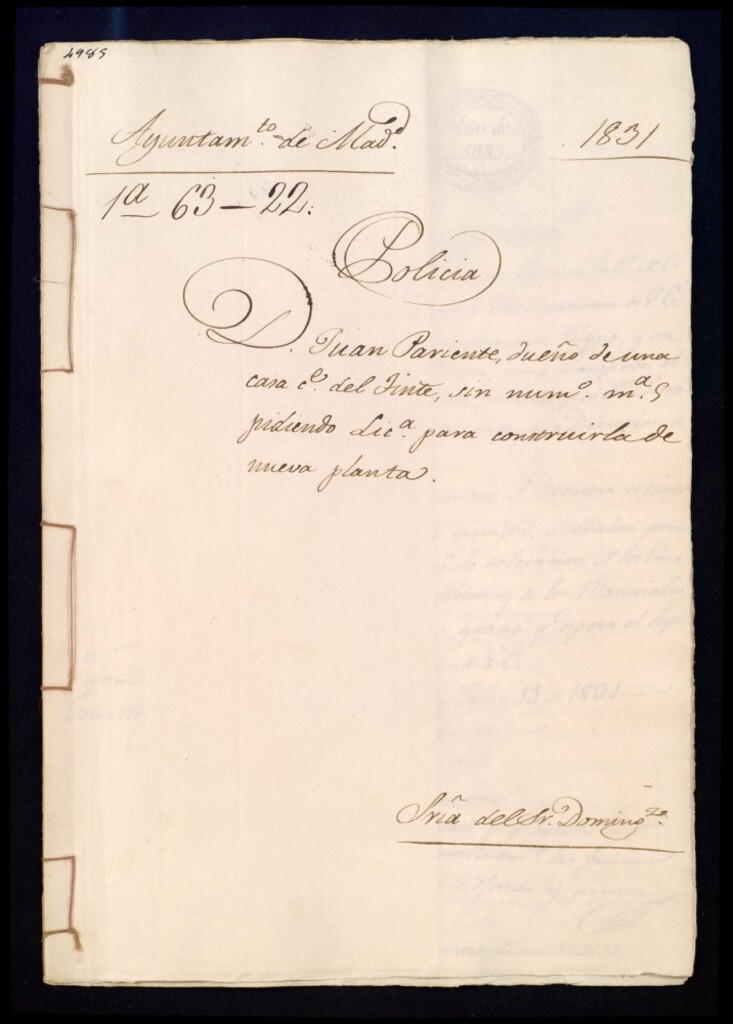 4985
Ayuntam.to de Mad.d
1831
1a 63-22.
Policia
D. Juan Pariente, dueño de una
casa c.e del Tinte, sin num.o m.a 5
pidiendo Lic.a para construirla de
nueva planta.
Sria del Sr. Doming.z